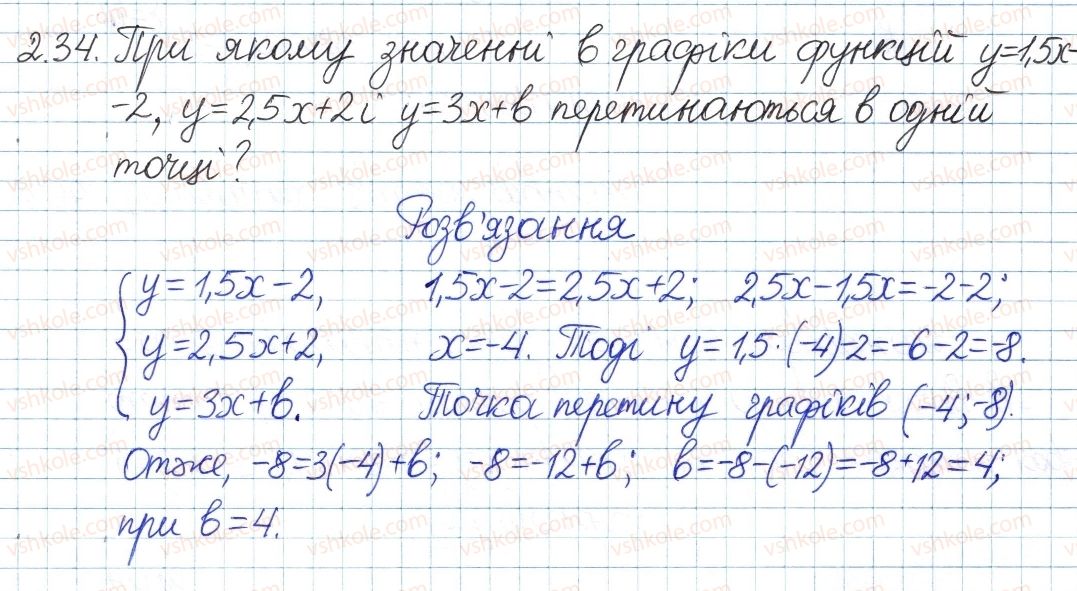 2.34. При якому значенні в графіки функцій y=1,5x-
-2, y=2,5x+2 і y=3x+в перетинаються в одній
точці?
Розв'язання
y=1,5x-2, 1,5x-2=2,5x+2; 2,5x-1,5x=-2-2;
y=2,5x+2, x=-4. Тоді y=1,5·(-4)-2=-6-2=-8.
y=3x+в. Точка перетину графіків (-4;-8).
Отже, -8=3(-4)+в; -8=-12+в; в=-8-(-12)=-8+12=4;
при в=4.